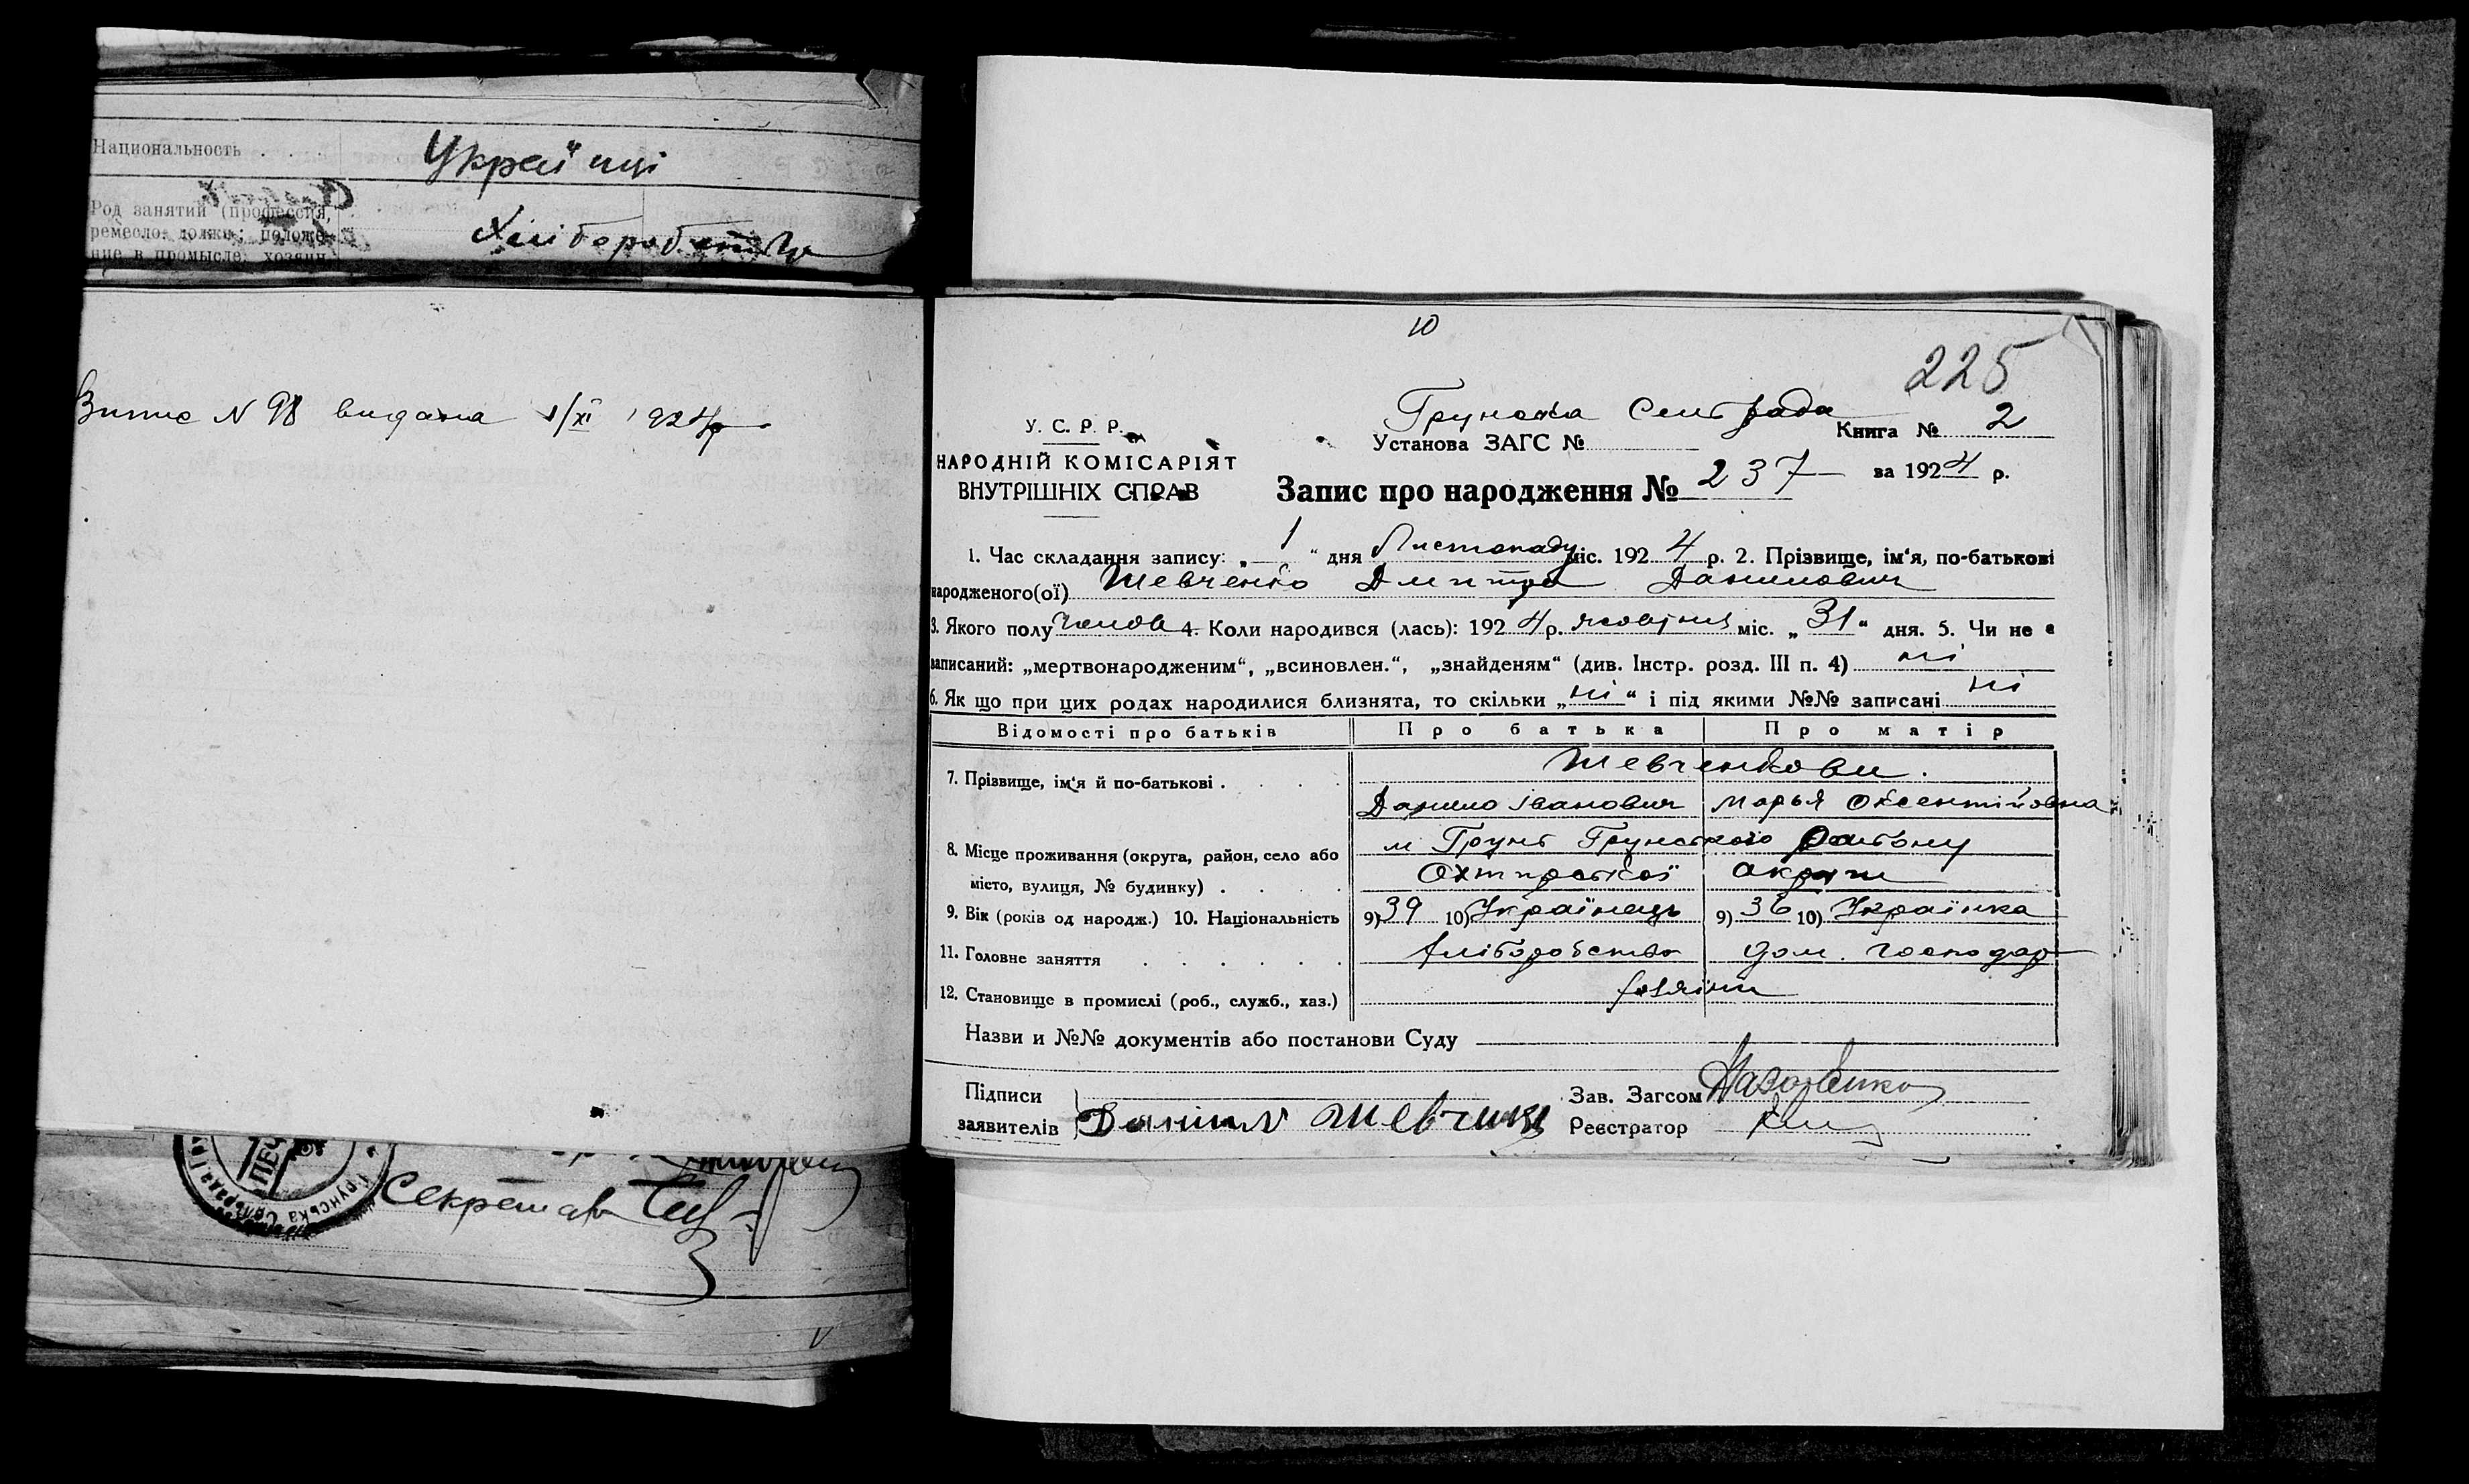 Национальность . . . Українці
Род занятий (профессия,
ремесло, должн.; положе-
ние в промысле: хозяин
Хліборобство
Витис N 98 видана 1/XI 1924 р
Грунська Сельрада
Секретар
V
10
225
Грунська Сельрада
У. С. Р. Р.
Установа ЗАГС №
Книга № 2
НАРОДНІЙ КОМІСАРІЯТ
ВНУТРІШНІХ СПРАВ
Запис про народження № 237 за 1924 р.
1. Час складання запису: „1“ дня Листопаду міс. 1924 р. 2. Прізвище, ім‘я, по-батькові
народженого(ої) Шевченко Дмитро Данилович
3. Якого полу чолов 4. Коли народився (лась): 1924 р. жовтня міс. „31“ дня. 5. Чи не є
записаний: „мертвонародженим“, „всиновлен.“, „знайденям“ (див. Інстр. розд. III п. 4) ні
6. Як що при цих родах народилися близнята, то скільки „ні“ і під якими №№ записані ні
Відомості про батьків Про батька Про матір
7. Прізвище, ім‘я й по-батькові . . . . Шевченкови.
Данило Іванович Марья Оксентійовна
8. Місце проживання (округа, район, село або м Грунь Грунського Району
місто, вулиця, № будинку) . . . . Охтирської Округи
9. Вік (років од народж.) 10. Національність 9) 39 10) Українець 9) 36 10) Українка
11. Головне заняття . . . . . . Хліборобство дом. господар
12. Становище в промислі (роб., служб., хаз.) хазяїни
Назви и №№ документів або постанови Суду
Підписи
заявителів Данило Шевченко
Зав. Загсом
Реєстратор